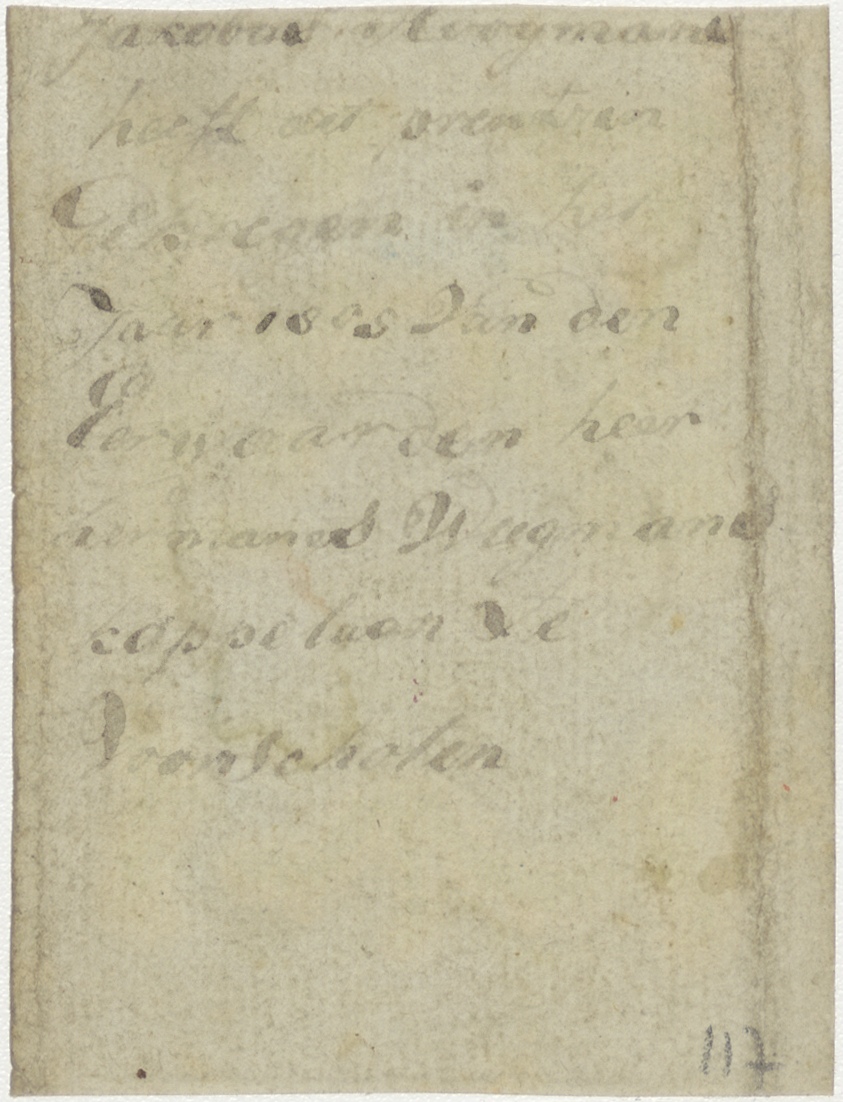 Jakobus Hoogmans
heeft dit prentien
Gekregen in het
Jaar 1805 Van den
Eerwaarden heer
hermanus Wegmans
kappelaan Te
Voorschoten
117